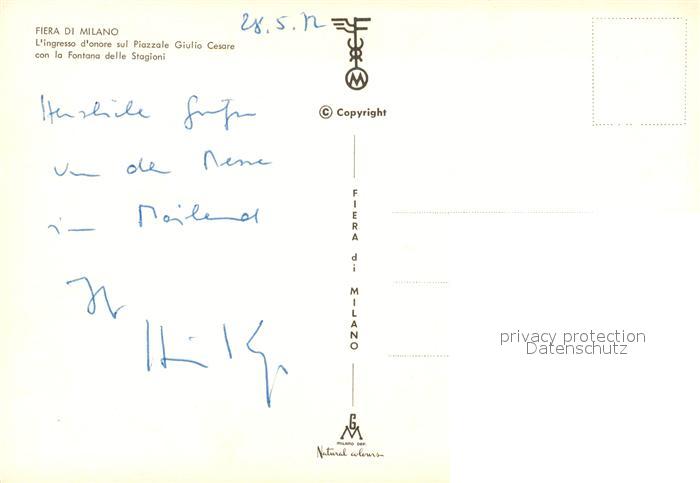 FIERA DI MILANO
L'ingresso d'onore sul Piazzale Giulio Cesare
con la Fontana delle Stagioni
28.5.72
M
© Copyright
Herzliche Grüße
von der Messe
in Mailand
Ihr
FIERA di MILANO
privacy protection
Datenschutz
GM
MILANO DEP.
Natural colours